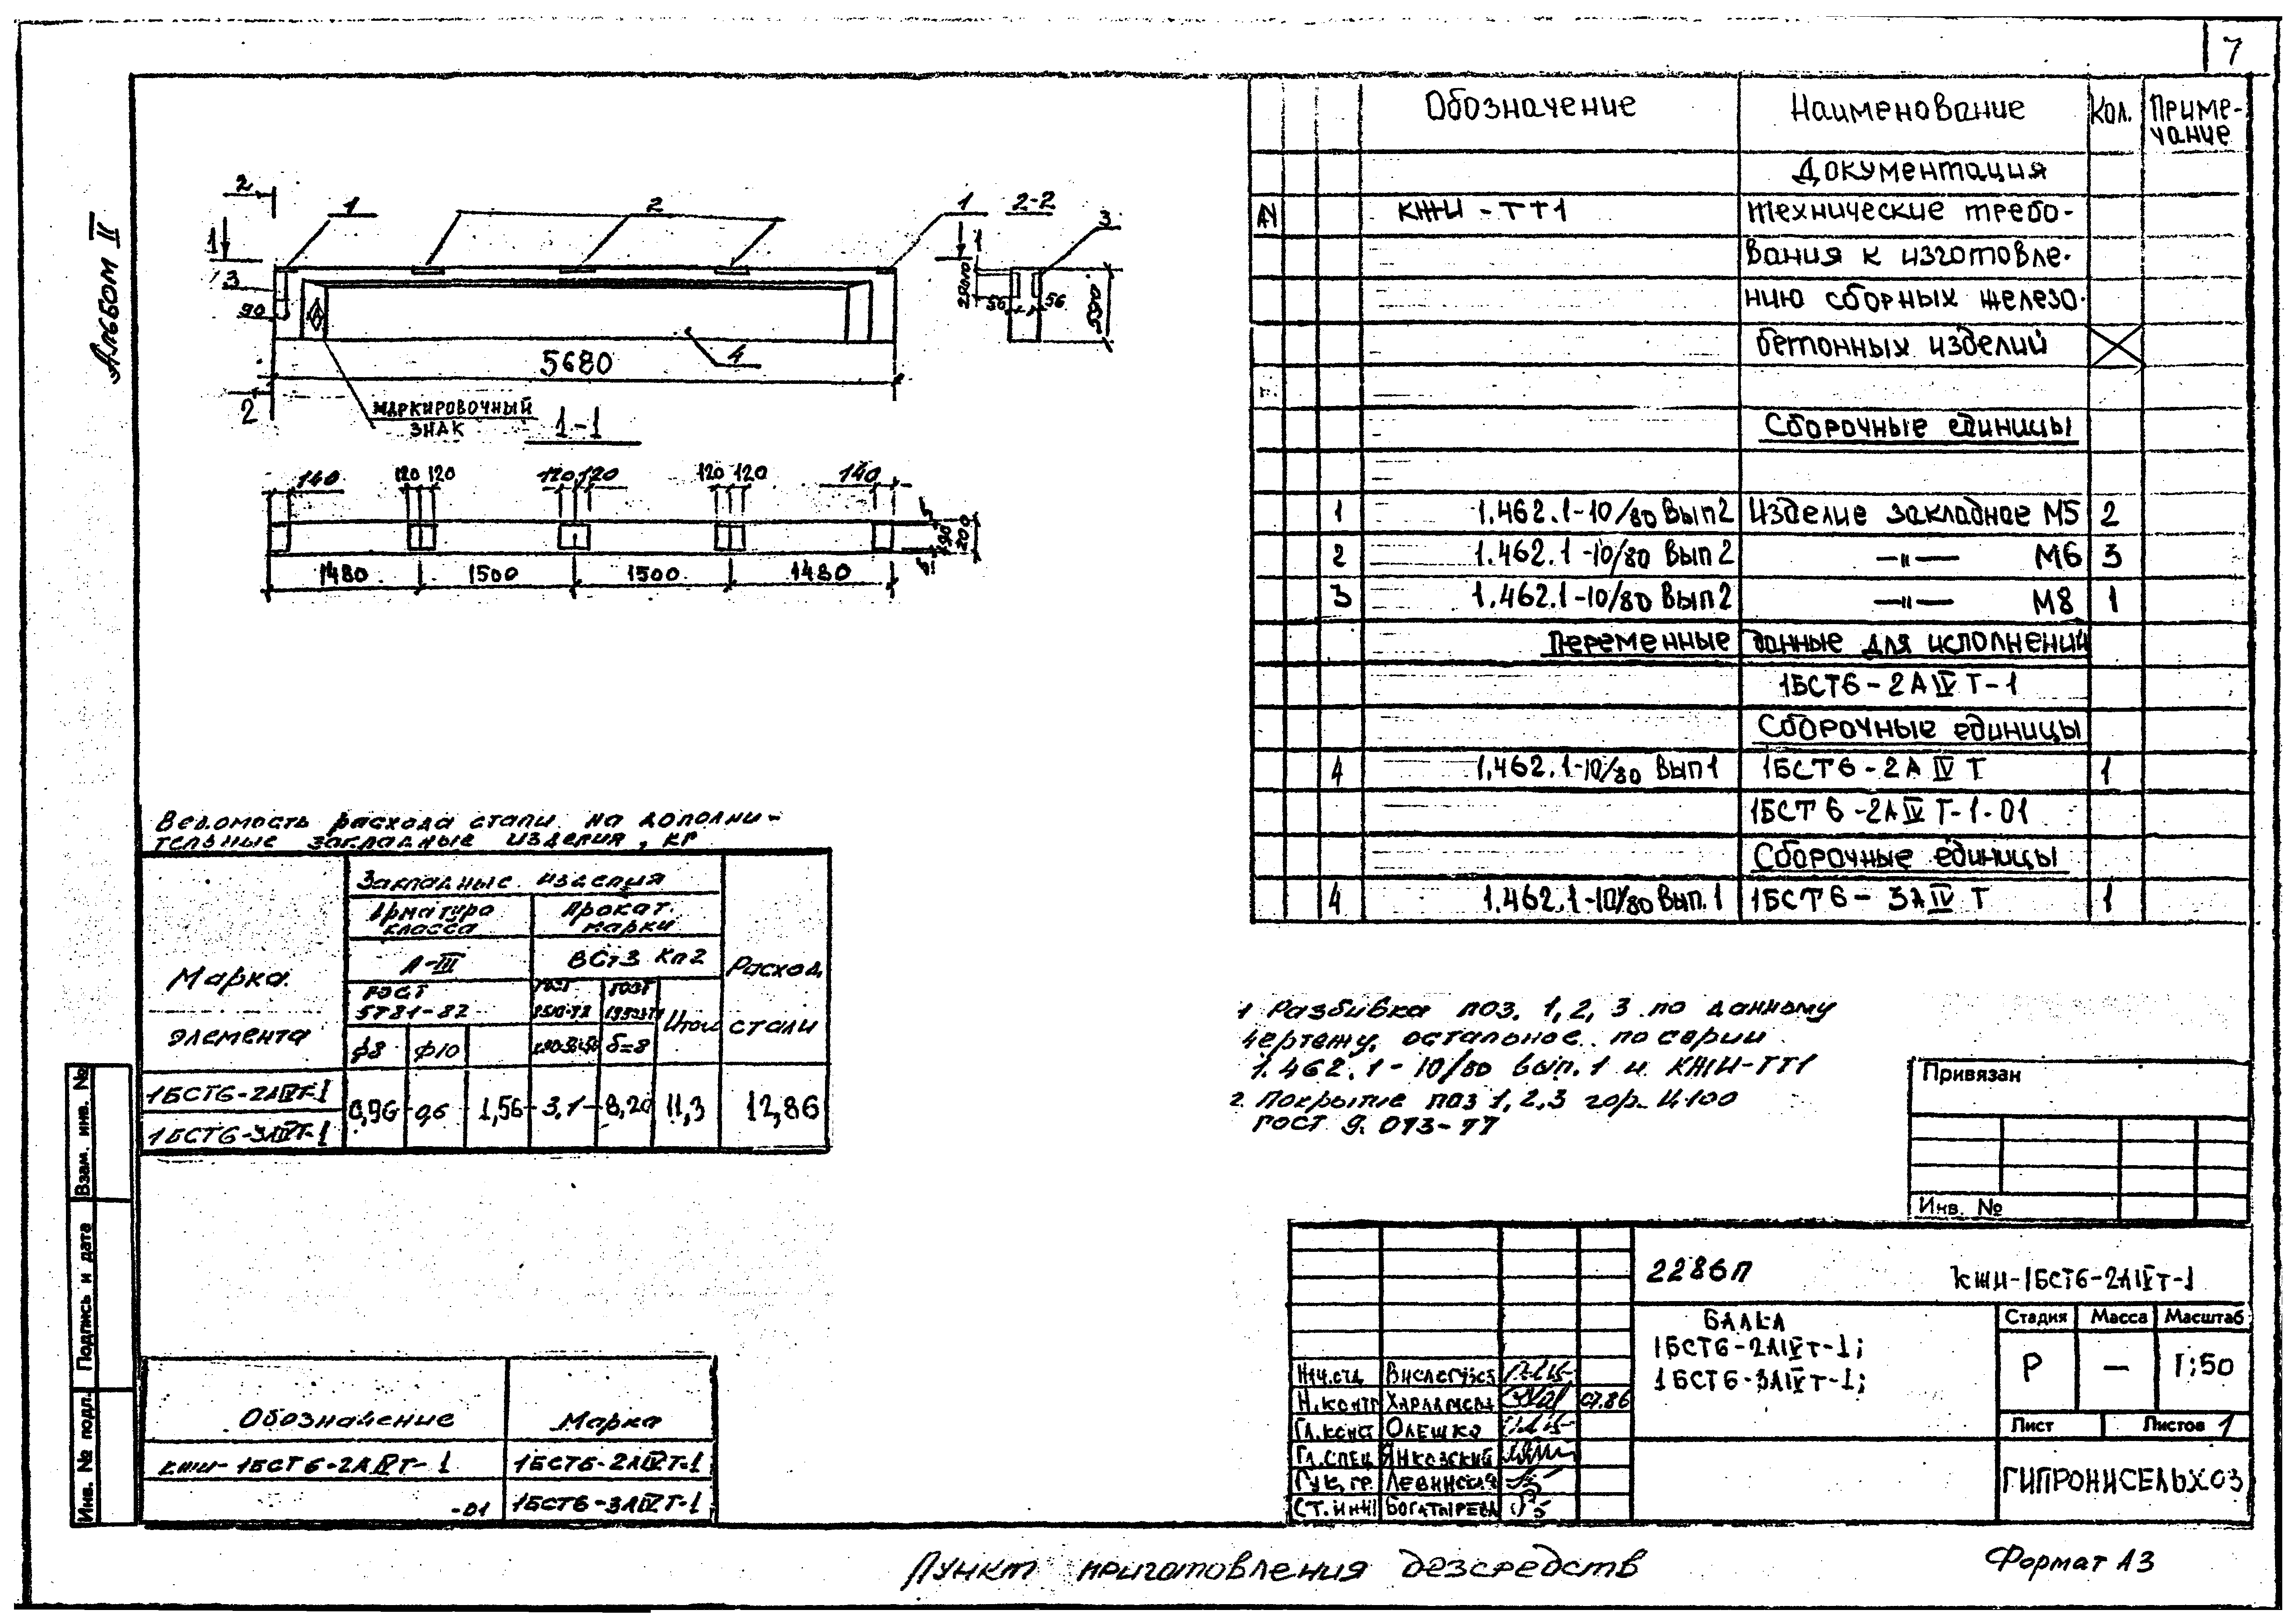 7
Альбом II
2
1
2
1
2-2
3
1
1
3
90
56
56
590
4
5680
2
маркировочный
знак
1-1
140
120 120
120 120
120 120
140
190
200
1480
1500
1500
1480
Обозначение
Наименование
Кол.
Приме-
чание
Документация
КЖИ-ТТ1
Технические требо-
вания к изготовле-
нию сборных железо-
бетонных изделий
Сборочные единицы
1 1.462.1-10/80 Вып2 Изделие закладное М5 2
2 1.462.1-10/80 Вып2 —"— М6 3
3 1.462.1-10/80 Вып2 —"— М8 1
Переменные данные для исполнений
1БСТ6-2АIVТ-1
Сборочные единицы
4 1.462.1-10/80 Вып1 1БСТ6-2АIVТ 1
1БСТ6-2АIVТ-1-01
Сборочные единицы
4 1.462.1-10/80 Вып.1 1БСТ6-3АIVТ 1
Ведомость расхода стали на дополни-
тельные закладные изделия, кг
Марка
элемента
Закладные изделия
Арматура
класса
Прокат
марки
А-III
ВСт3 Кп2
Расход
стали
ГОСТ
5781-82
ГОСТ
ГОСТ
Итого
ф8
ф10
δ=8
1БСТ6-2АIVТ-1
1БСТ6-3АIVТ-1
0,96
0,6
1,56
3,1
8,20
11,3
12,86
1 Разбивка поз. 1, 2, 3 по данному
чертежу, остальное по серии
1.462.1-10/80 вып.1 и КЖИ-ТТ1
2 Покрытие поз 1, 2, 3 гор. Ц100
ГОСТ 9.073-77
Привязан
Инв. №
Взам. инв. №
Подпись и дата
Инв. № подл.
Обозначение
Марка
КЖИ-1БСТ6-2АIVТ-1
1БСТ6-2АIVТ-1
-01
1БСТ6-3АIVТ-1
2286П
КЖИ-1БСТ6-2АIVТ-1
Балка
1БСТ6-2АIVТ-1;
1БСТ6-3АIVТ-1;
Стадия
Масса
Масштаб
Р
—
1:50
Лист
Листов 1
ГИПРОНИСЕЛЬХОЗ
Нач.отд
Н.контр
07.86
Гл.конст Олешко
Гл.спец Янковский
Рук.гр. Левинская
Ст.инж Богатырева
Пункт приготовления дезсредств
Формат А3